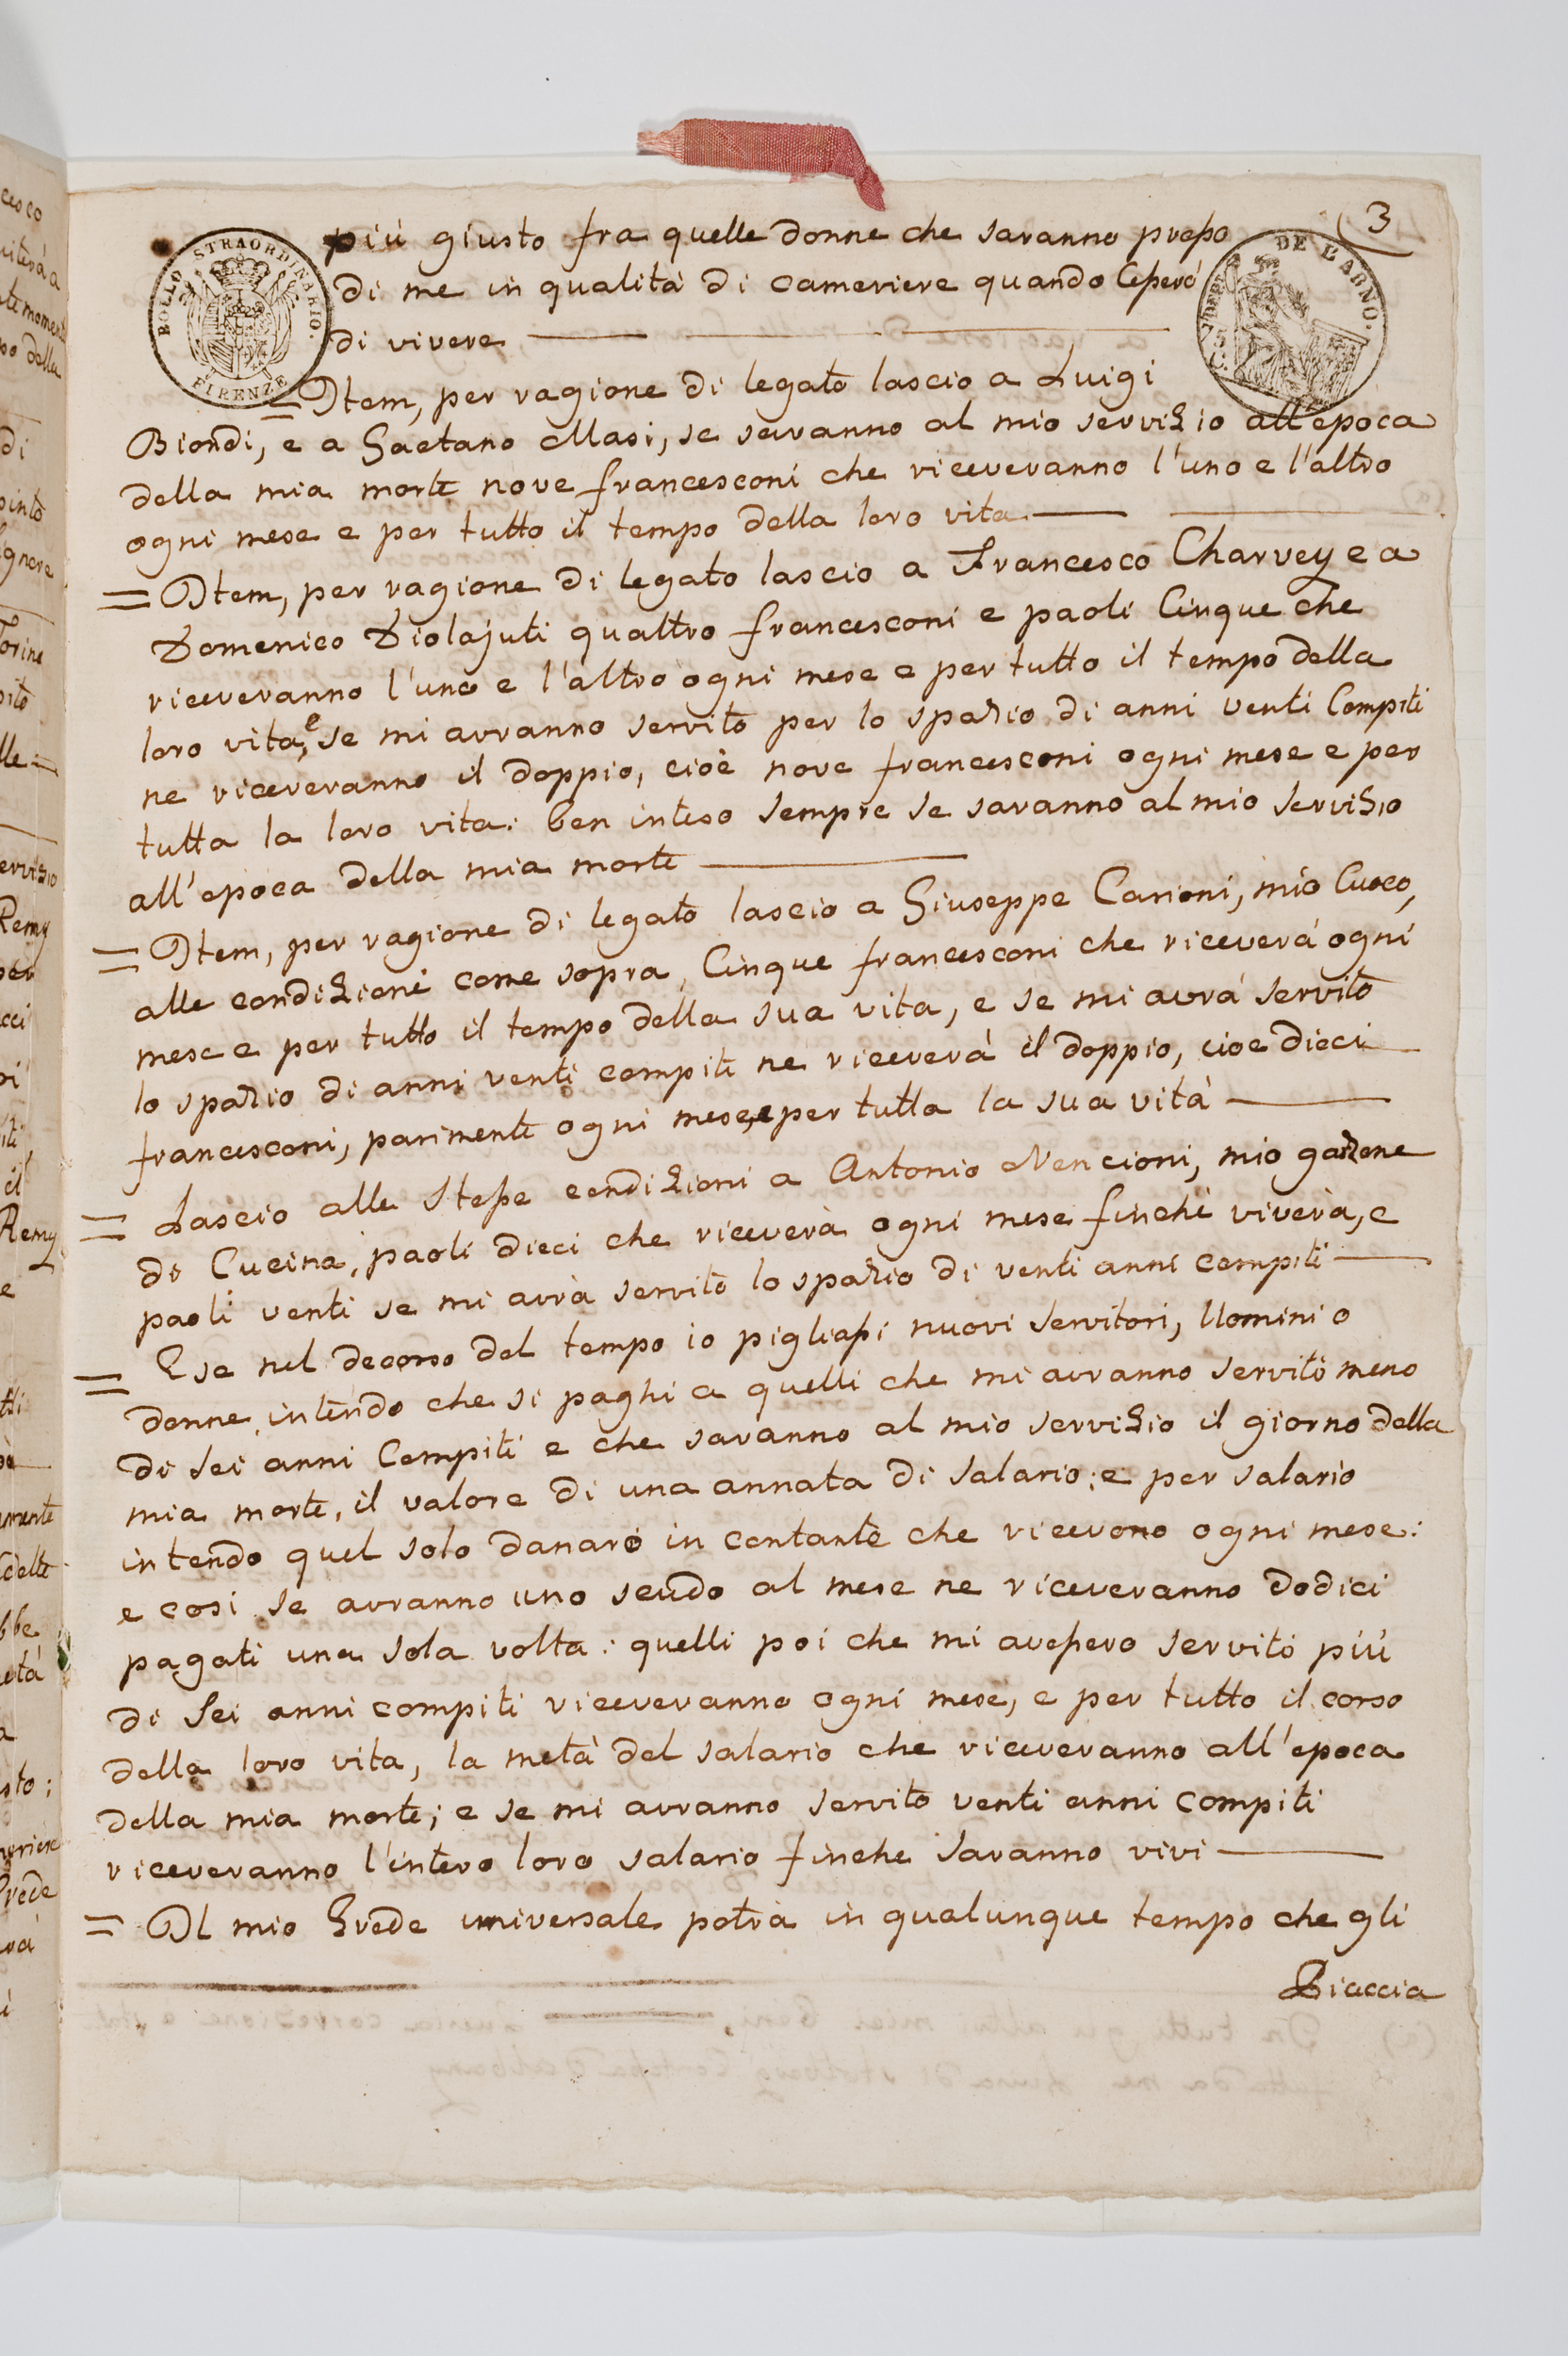 3
BOLLO STRAORDINARIO.
FIRENZE
DE L'ARNO.
più giusto fra quelle donne che saranno presso
di me in qualità di cameriere quando Cesserò
di vivere
= Item, per ragione di legato lascio a Luigi
Biondi, e a Gaetano Masi, se saranno al mio servizio all'epoca
della mia morte nove francesconi che riceveranno l'uno e l'altro
ogni mese e per tutto il tempo della loro vita
= Item, per ragione di legato lascio a Francesco Charvey e a
Domenico Diolajuti quattro francesconi e paoli Cinque che
riceveranno l'uno e l'altro ogni mese e per tutto il tempo della
loro vita, e se mi avranno servito per lo spazio di anni venti Compiti
ne riceveranno il doppio, cioè nove francesconi ogni mese e per
tutta la loro vita: ben inteso sempre se saranno al mio servizio
all'epoca della mia morte
= Item, per ragione di legato lascio a Giuseppe Carioni, mio Cuoco,
alle condizioni come sopra, Cinque francesconi che riceverà ogni
mese e per tutto il tempo della sua vita, e se mi avrà servito
lo spazio di anni venti compiti ne riceverà il doppio, cioe dieci
francesconi, parimente ogni mese, e per tutta la sua vita
= Lascio alle Stesse condizioni a Antonio Nencioni, mio garzone
di Cucina, paoli dieci che riceverà ogni mese finchè viverà, e
paoli venti se mi avrà servito lo spazio di venti anni compiti
= E se nel decorso del tempo io pigliassi nuovi Servitori, Uomini o
donne, intendo che si paghi a quelli che mi avranno servito meno
di sei anni Compiti e che saranno al mio servizio il giorno della
mia morte, il valore di una annata di Salario: e per salario
intendo quel solo danaro in contante che ricevono ogni mese:
e così se avranno uno scudo al mese ne riceveranno dodici
pagati una sola volta: quelli poi che mi avessero servito più
di Sei anni compiti riceveranno ogni mese, e per tutto il corso
della loro vita, la metà del salario che riceveranno all'epoca
della mia morte; e se mi avranno servito venti anni compiti
riceveranno l'intero loro salario finche saranno vivi
= Il mio Erede universale potrà in qualunque tempo che gli
Piaccia